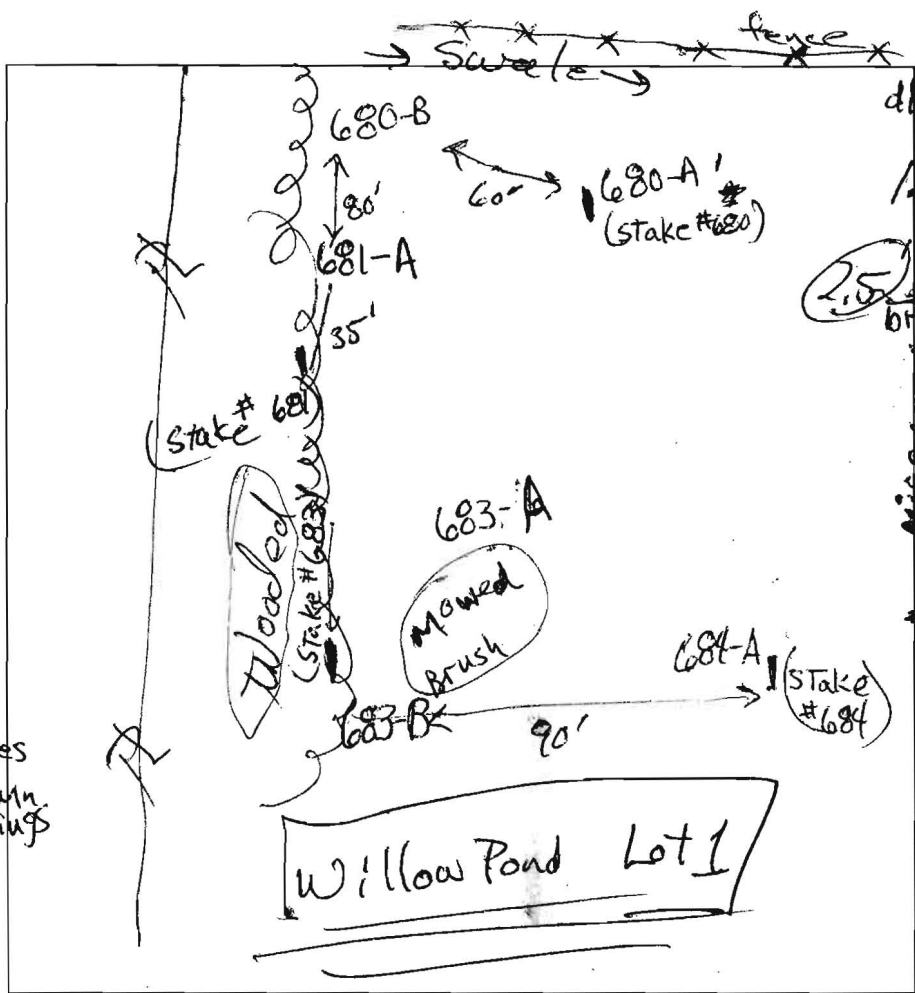 fence
Swale
680-B
60'
680-A
(stake #680)
80'
681-A
2.5
35'
(stake # 681)
Wooded
(Stake #683)
683-A
Mowed
Brush
684-A
(STake
#684)
683-B
90'
Willow Pond Lot 1